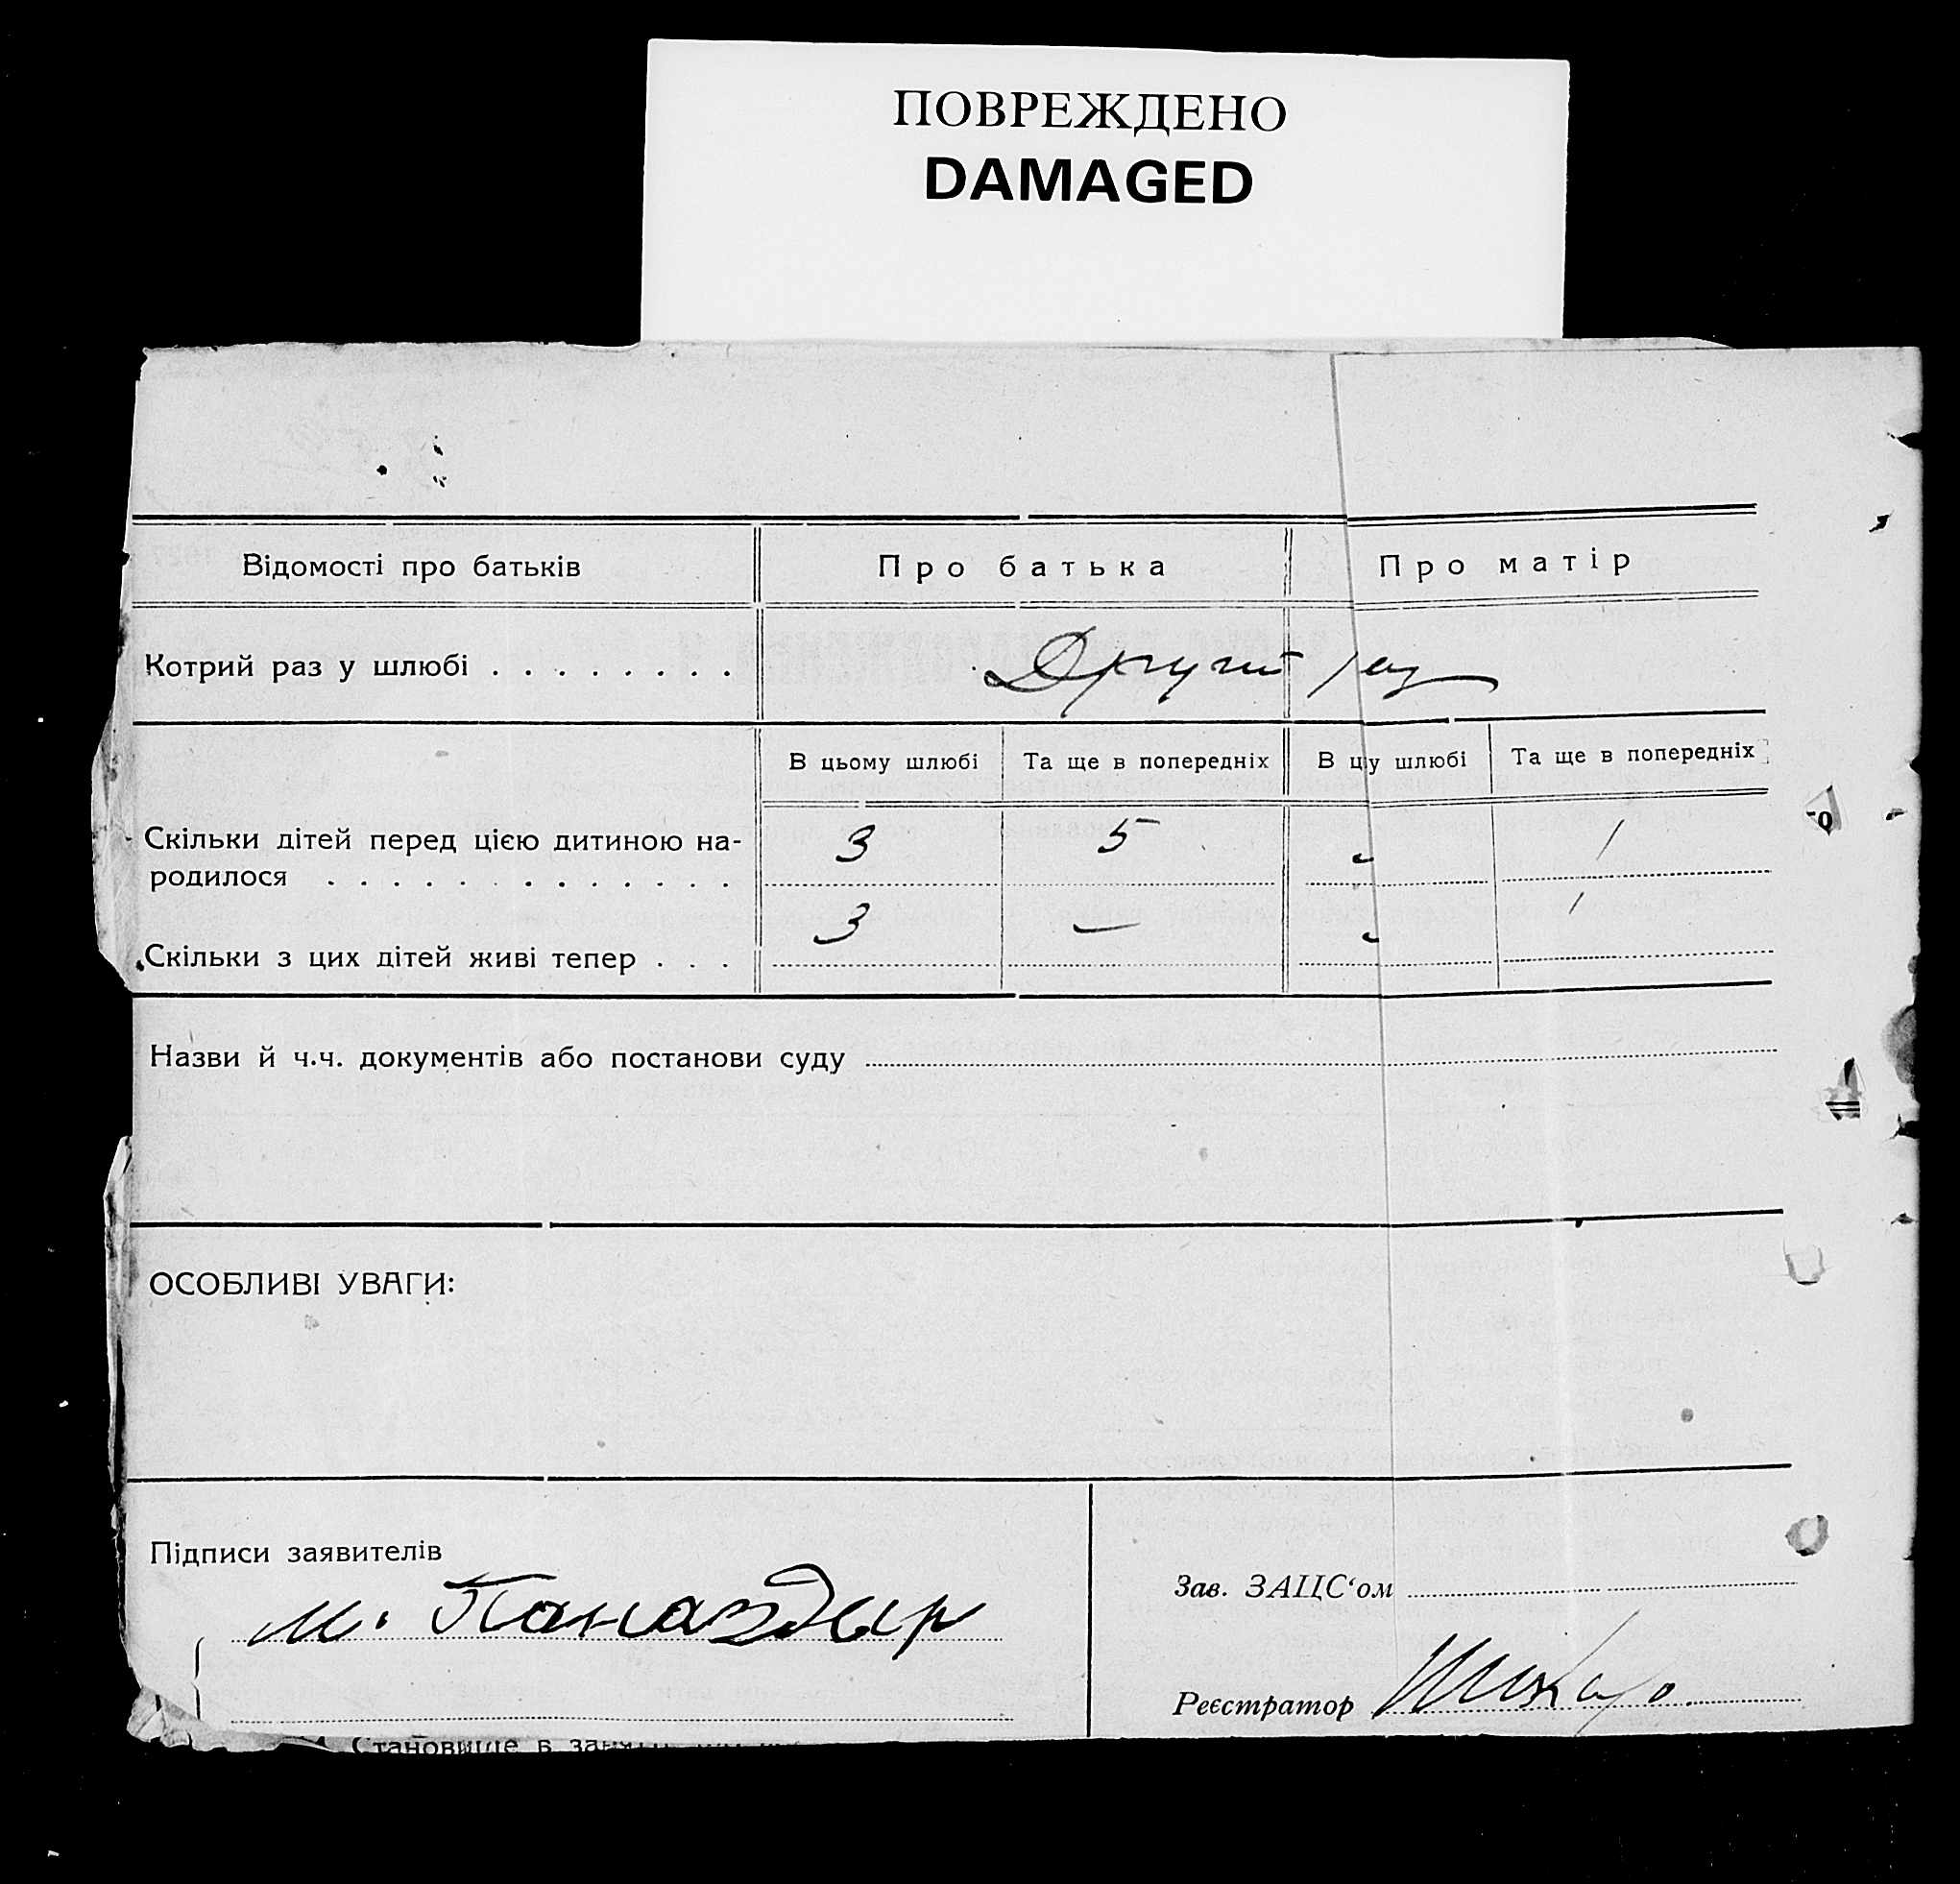 ПОВРЕЖДЕНО
DAMAGED
Відомості про батьків Про батька Про матір
Котрий раз у шлюбі . . . . . . . . Другий раз
В цьому шлюбі Та ще в попередніх В ц у шлюбі Та ще в попередніх
Скільки дітей перед цією дитиною на- 3 5 " 1
родилося . . . . . . . . . . . . .
Скільки з цих дітей живі тепер . . . 3 — " 1
Назви й ч.ч. документів або постанови суду
ОСОБЛИВІ УВАГИ:
Підписи заявителів
М. Поназдыр
Зав. ЗАЦС‘ом
Реєстратор
Становище в